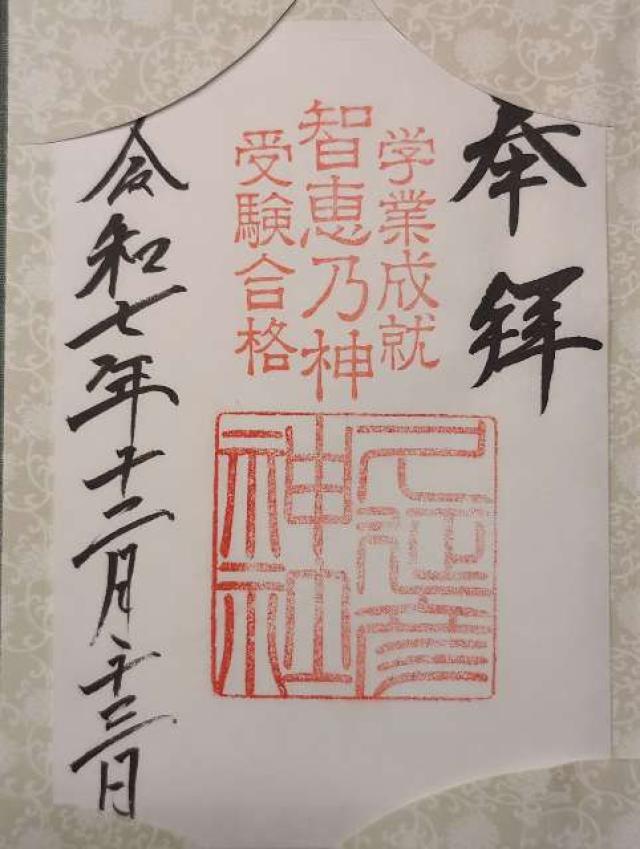 奉拝
学業成就
智恵乃神
受験合格
久延彦
神社
令和七年十二月二十三日